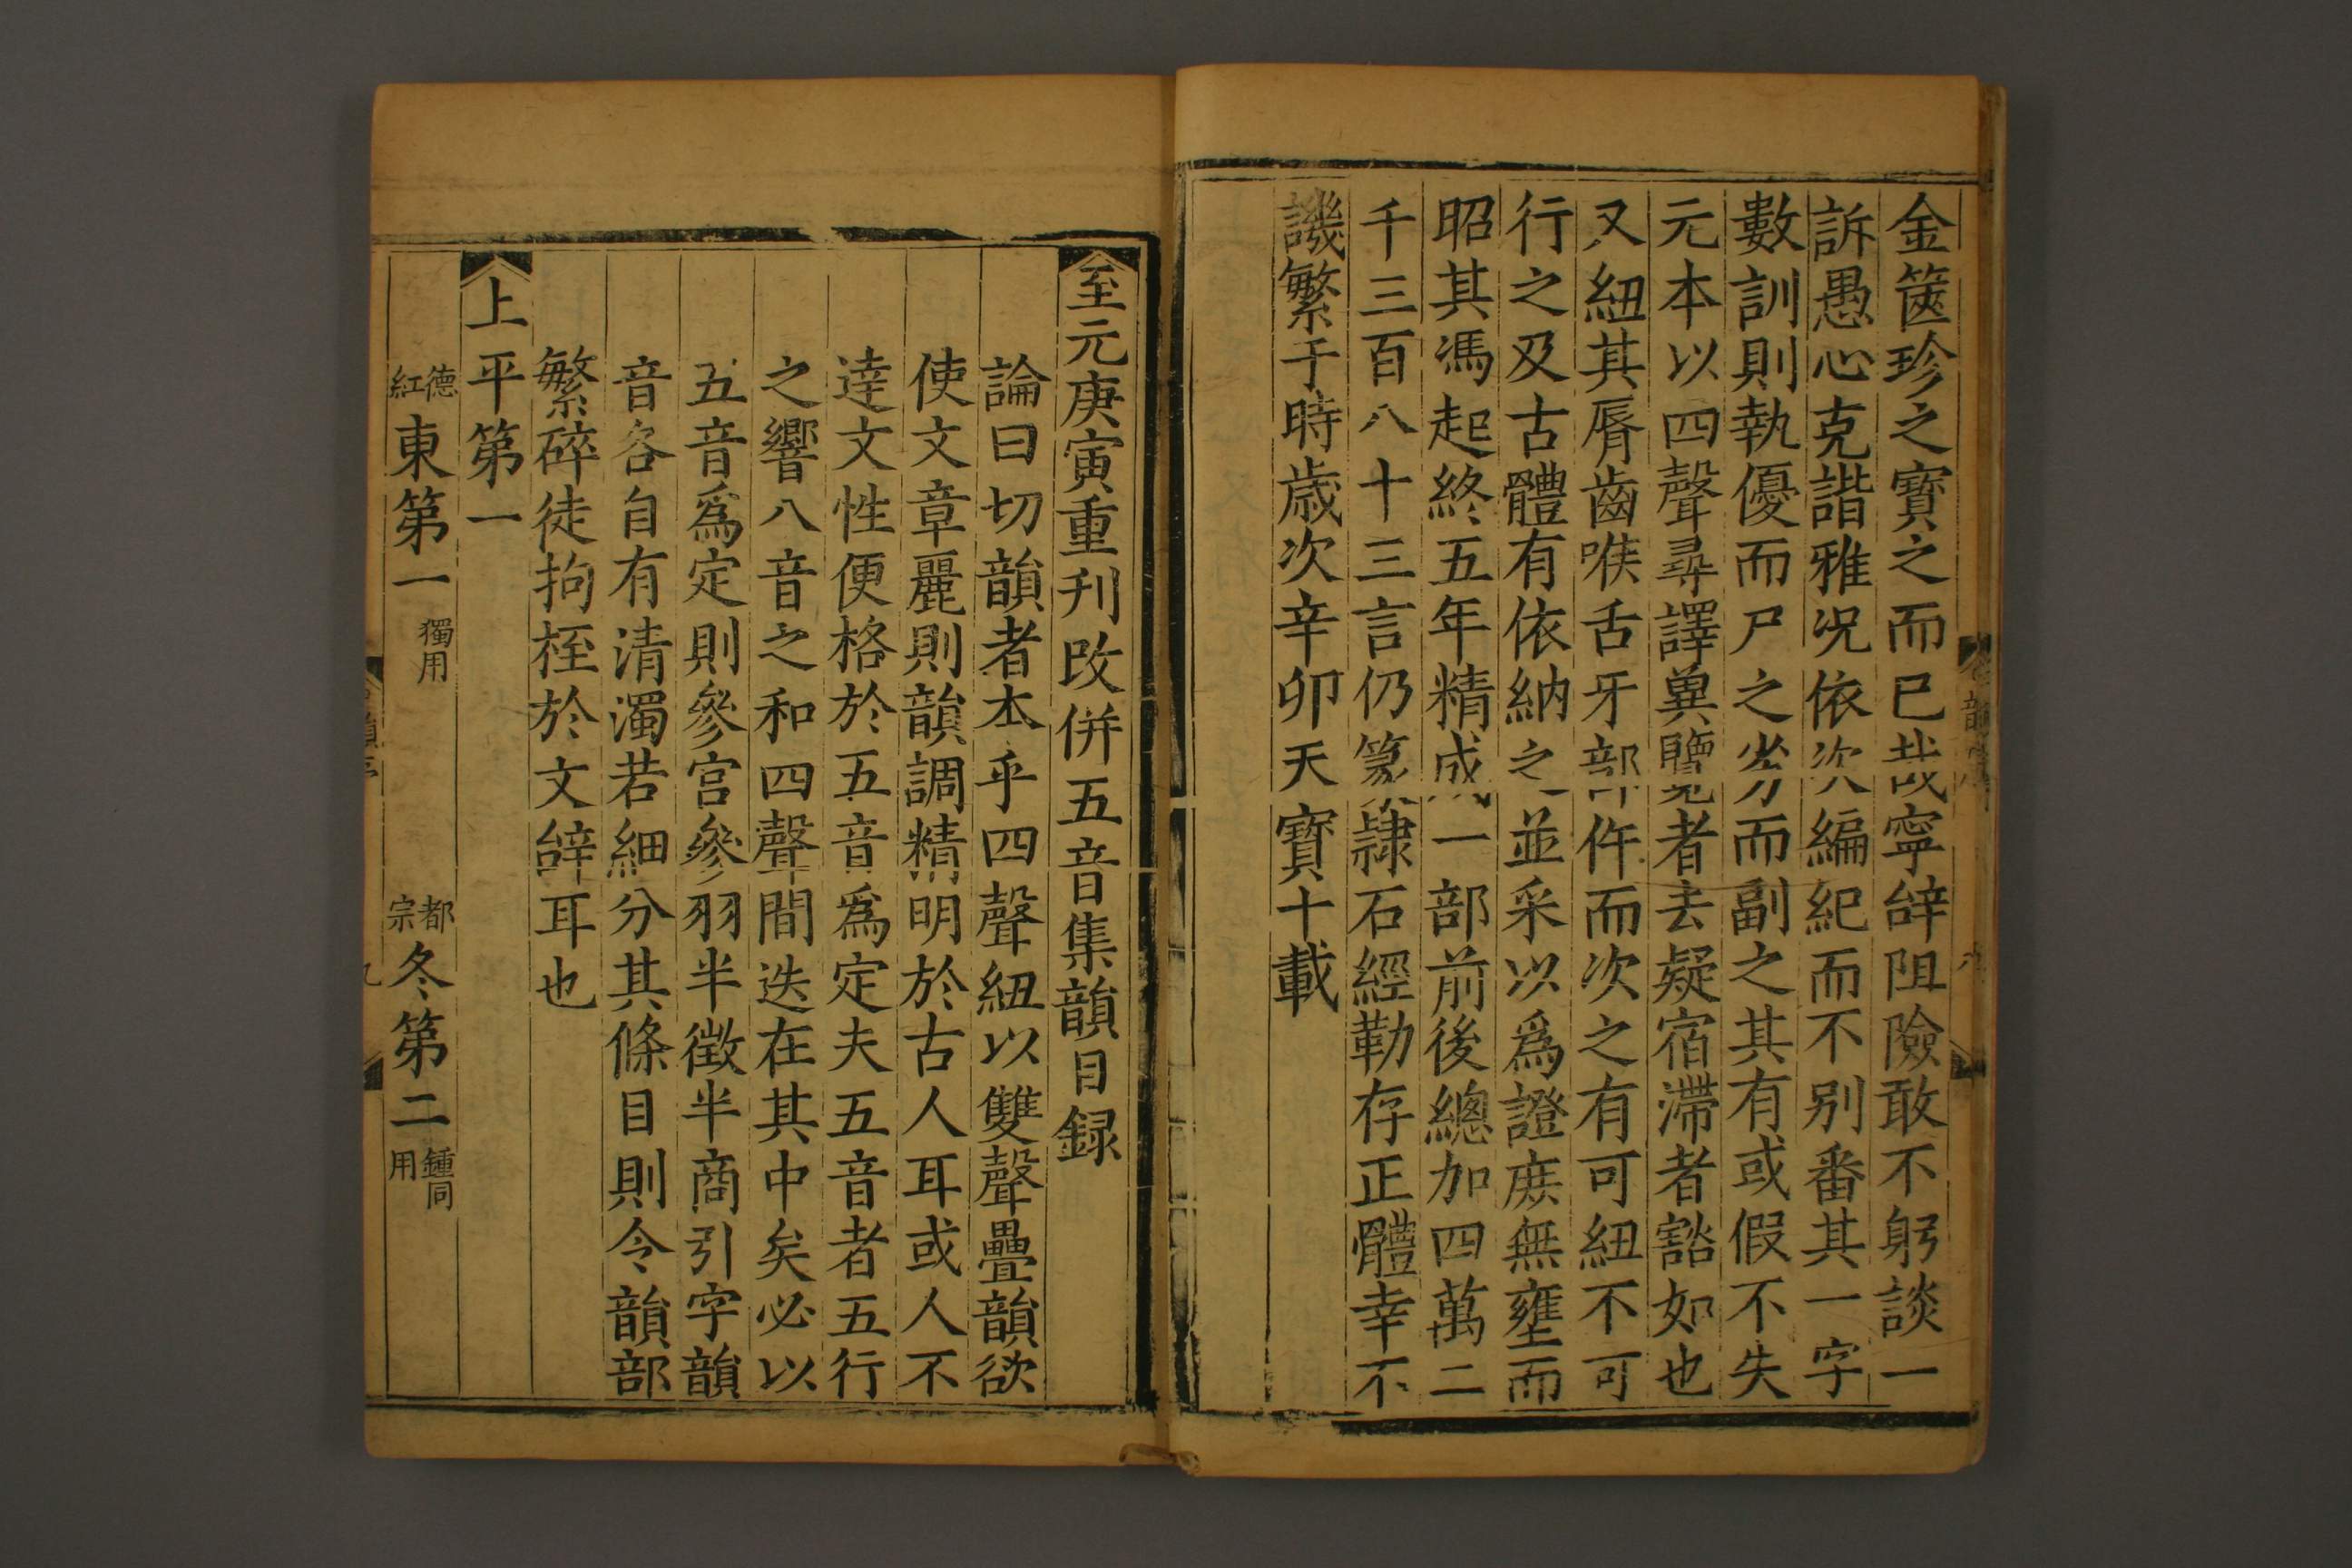 金篋珍之寶之而已哉寧辞阻險敢不躬談一
訴愚心克諧雅况依次編紀而不别番其一字
數訓則執優而尸之劣而副之其有或假不失
元本以四聲尋譯兾覽者去疑宿滯者豁如也
又紐其脣齒喉舌牙部仵而次之有可紐不可
行之及古體有依納之並采以爲證庻無壅而
昭其馮起終五年精成一部前後總加四萬二
千三百八十三言仍篆隷石經勒存正體幸不
譏繁于時歳次辛卯天寶十載
至元庚寅重刊改併五音集韻目録
論曰切韻者本乎四聲紐以雙聲疊韻欲
使文章麗則韻調精明於古人耳或人不
逹文性便格於五音爲定夫五音者五行
之響八音之和四聲間迭在其中矣必以
五音爲定則參宮參羽半徵半商引字韻
音各自有清濁若細分其條目則令韻部
繁碎徒拘桎於文辞耳也
上平第一
德紅東第一獨用 都宗冬第二鍾同用